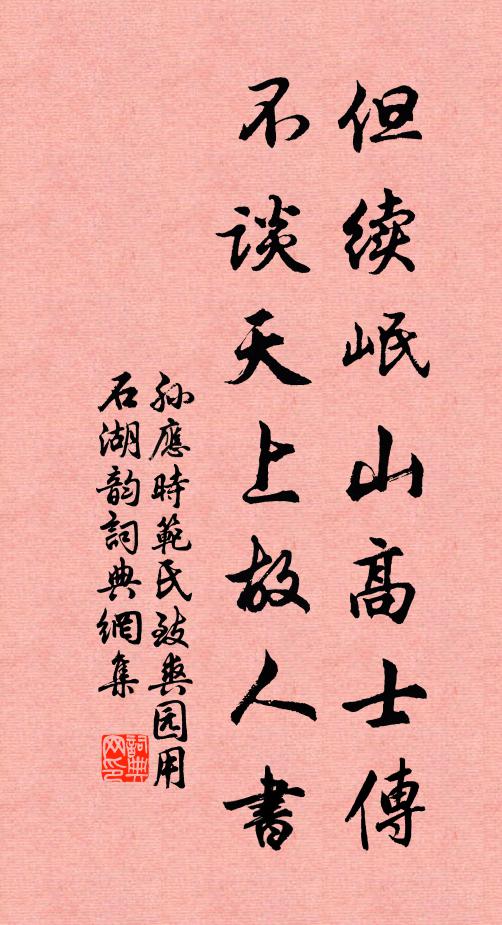 但续岷山高士傳
不談天上故人書
孫應時範氏致爽园用
石湖韵詞典網集
詞典网印